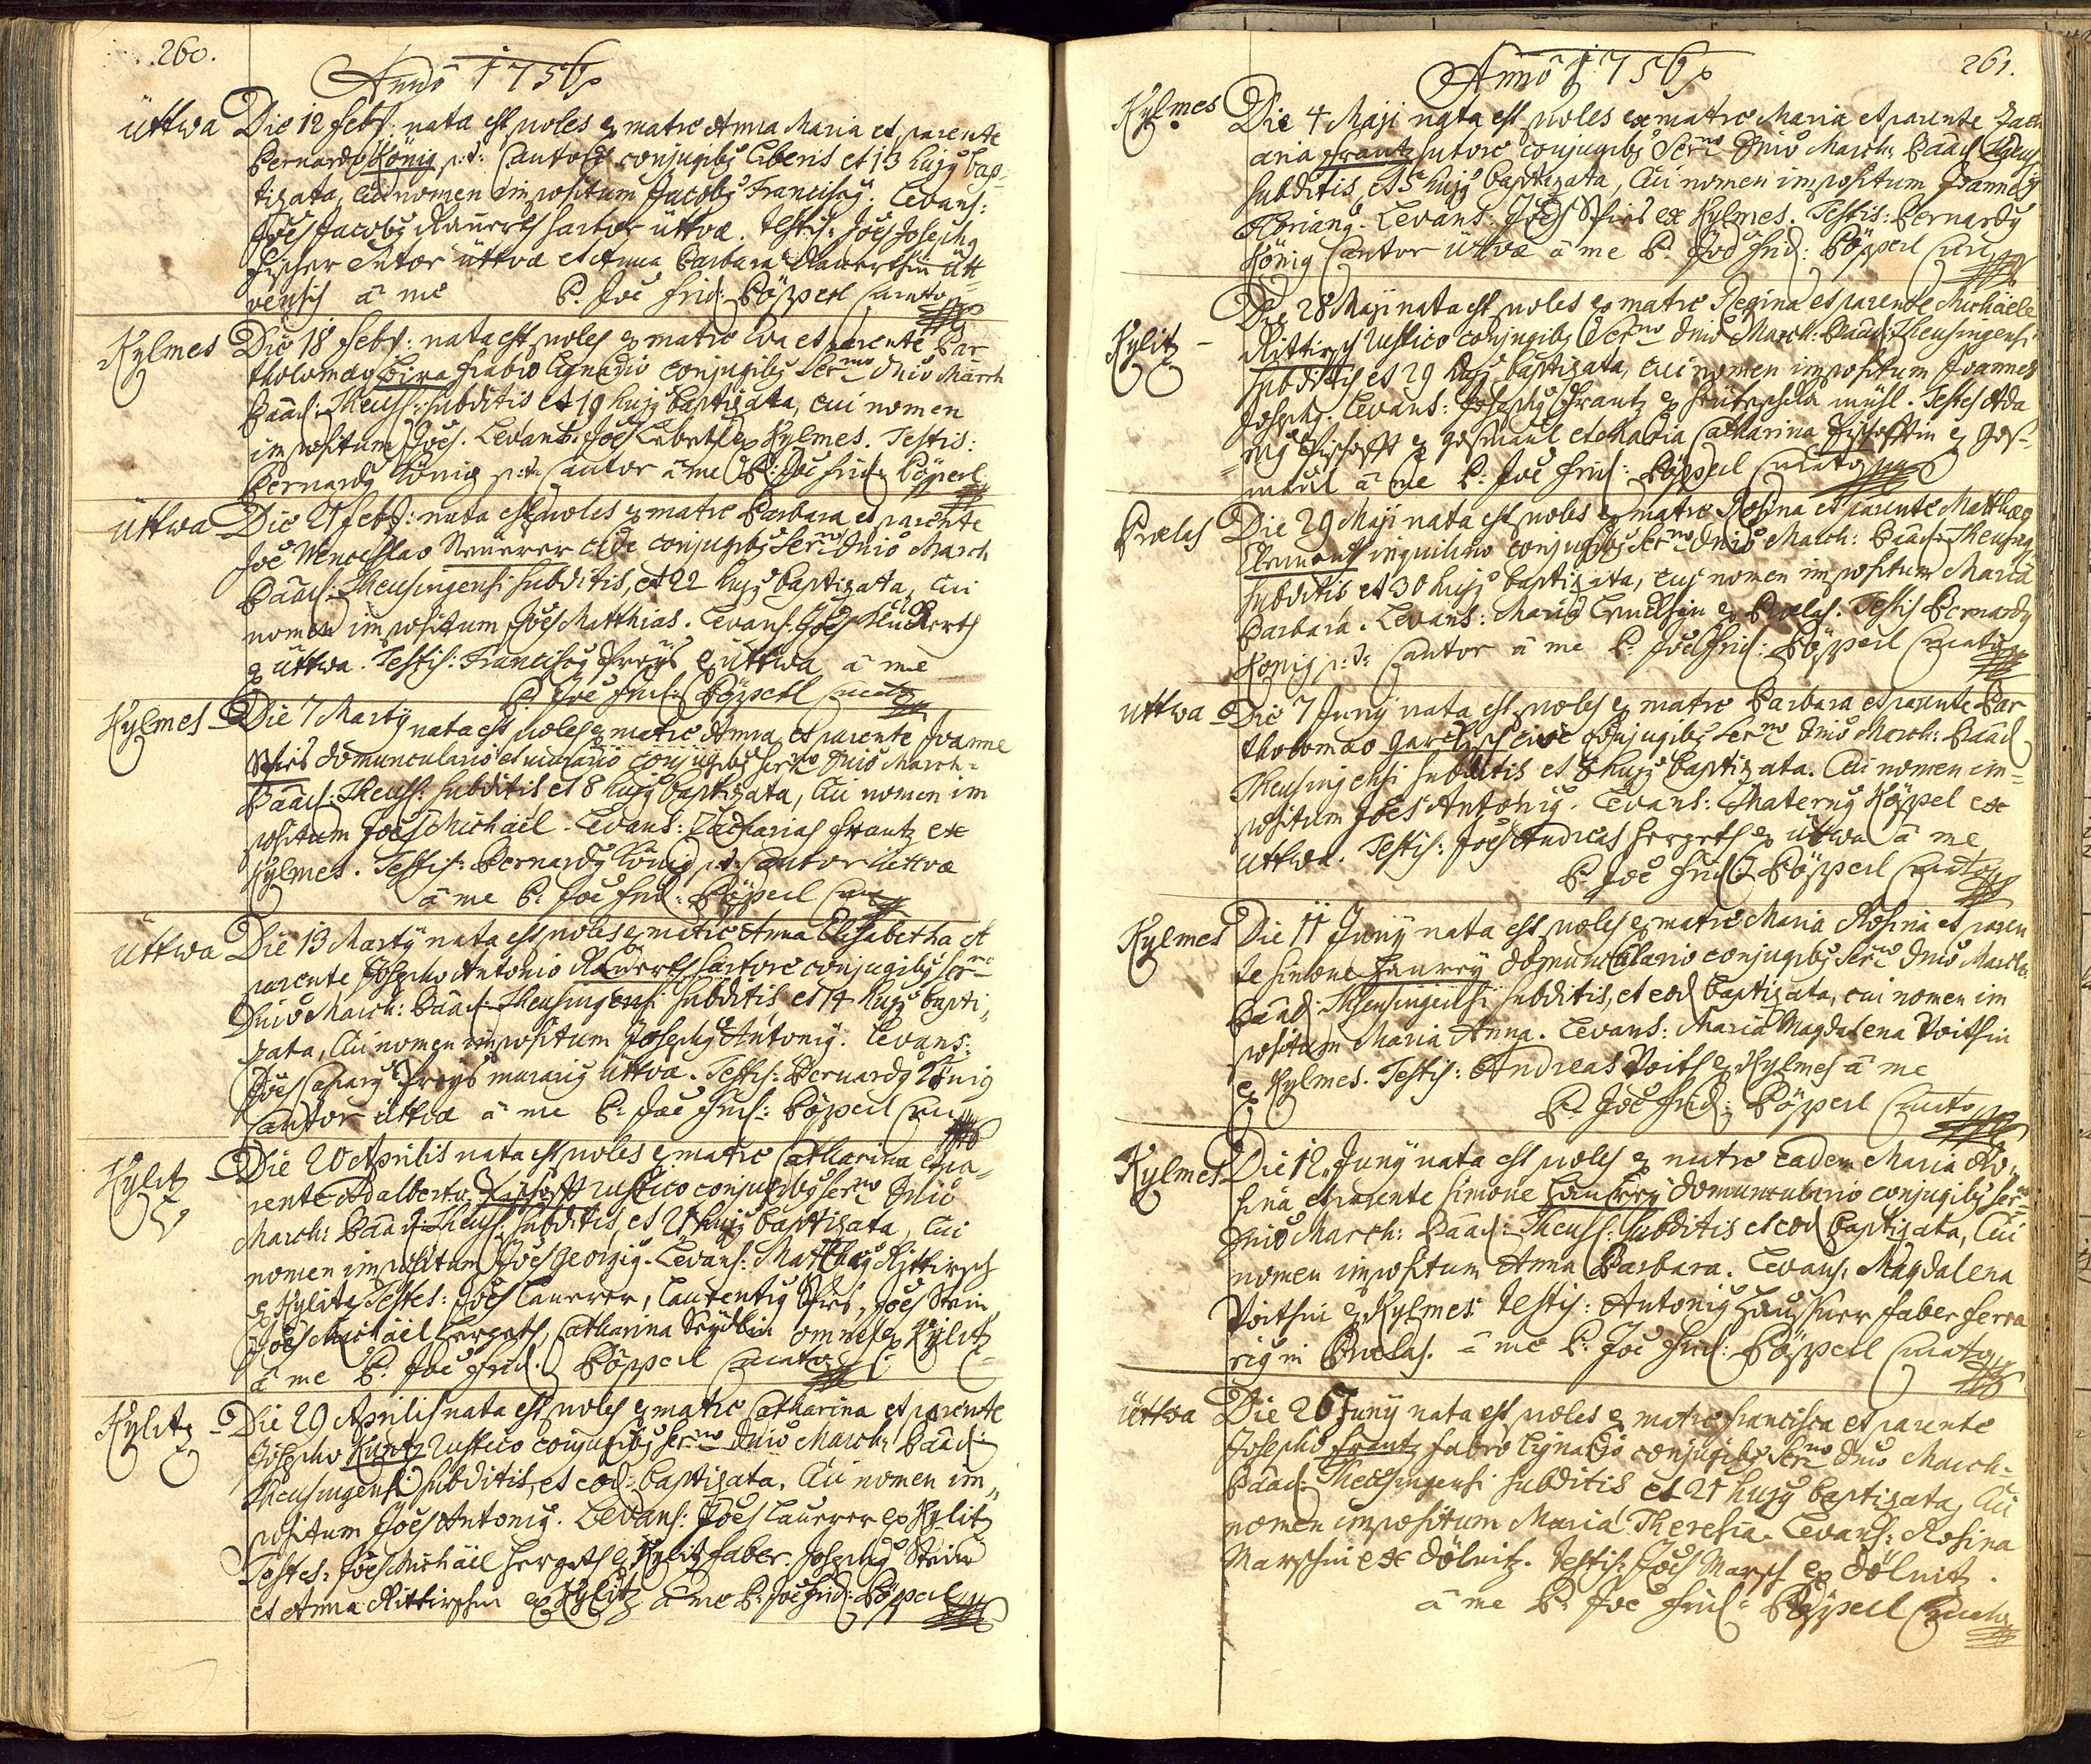 260.
Anno 1756
üttwa Die 12 Febr: nata est proles ex matre Anna Maria et parente
Bernardo König p:t: Cantore conjugibus liberis et 13 hujus bap-
tizata, cui nomen impositum Jacobus Franciscus. Levans:
Joes Jacobus Rauerth sartor üttvæ. Testis: Joes Josephus
Fischer Sutor üttvæ et Anna Barbara Rauerthin ütt
vensis à me P. Joe Frid: Pöpperl Curato
Kylmes Die 18 Febr: nata est proles ex matre Eva et parente Bar
tholomæo Fabro lignario conjugibus Sermo Dnio March
Baad: Theus: subditis et 19 hujus baptizata, cui nomen
impositum Joes. Levans: Joes ex Kylmes. Testis:
Bernardus König p:t: Cantor à me P: Joe Frid: Pöpperl
üttwa Die 21 Febr: nata est proles ex matre Barbara et parente
Joe Wenceslao cive conjugibus Sermo Dnio March
Baad: Theusingensi subditis, et 22 hujus baptizata, cui
nomen impositum Joes Matthias. Levans: Joes
ex üttwa. Testis: Franciscus Preÿs ex üttwa à me
P. Joe Frid: Pöpperl Curato
Kylmes Die 7 Martÿ nata est proles ex matre Anna et parente Joanne
Spies domunculario et murario conjugibus Sermo Dnio March:
Baad: Theus: subditis et 8 hujus baptizata, cui nomen im
positum Joes Michael. Levans: Zacharias Frantz ex
Kylmes. Testis: Bernardus König p:t: Cantor üttvæ
à me P: Joe Frid: Pöpperl Cur
üttwa Die 13 Martÿ nata est proles ex matre Anna Elisabetha et
parente Josepho Antonio Rauerth sartore conjugibus Sermo
Dnio March: Baad: Theusingensi subditis, et 14 hujus bapti,
zata, cui nomen impositum Josephus Antonius. Levans:
Joes Casparus Preÿs murarius üttvæ. Testis: Bernardus König
Cantor üttvæ à me P: Joe Frid: Pöpperl Cur
Kylitz Die 20 Aprilis nata est proles ex matre Catharina et pa-
rente Adalberto rustico conjugibus Sermo Dnio
March: Baad: Theus: subditis, et 21 hujus baptizata, cui
nomen impositum Joes Georgius. Levans: Matthæus Rittirsch
ex Kylitz Testes: Joes Lauerer, Laurentius Spies, Joes Stein,
Joes Michaël Hergeth, Catharina omnes ex Kylitz
à me P: Joe Frid: Pöpperl Curato
Kylitz Die 29 Aprilis nata est proles ex matre Catharina et parente
Josepho Kuntz rustico conjugibus Sermo Dnio March: Baad:
Theusingensi subditis, et eod: baptizata. Cui nomen im,
positum Joes Antonius. Levans: Joes Lauerer ex Kylitz
Testes: Joes Michäel Hergeth ex Kylitz faber. Josephus Stein
et Anna Rittirschin ex Kylitz à me P: Joe Frid: Pöpperl
261.
Anno 1756
Kylmes Die 4 Maji nata est proles ex matre Maria et parente Zach
aria Frantz sutore conjugibus Sermo Dnio March: Baad: Theus
subditis, et 5 hujus baptizata, cui nomen impositum Joannes
Florianus. Levans: Joes Spies ex Kylmes. Testis: Bernardus
König Cantor üttvæ à me P: Joe Frid: Pöpperl Cur
Kylitz Die 28 Maji nata est proles ex matre Regina et parente Michäele
Rittirsch rustico conjugibus Sermo Dnio March: Baad: Theusingensi
subditis et 29 hujus baptizata, cui nomen impositum Joannes
Josephus. Levans: Josephus Frantz ex mühl. Testes Ada
mus Bischofft ex Gosmaul et Maria Catharina Bischofftin ex Gos-
maul à me P: Joe Frid: Pöpperl Curato
Prœlas Die 29 Maji nata est proles ex matre Rosina et parente Matthæo
Clement inquilino conjugibus Sermo Dnio March: Baad: Theusing
subditis et 30 hujus baptizata, cui nomen impositum Maria
Barbara. Levans: Maria ex Prœlas. Testis Bernardus
König p:t: Cantor à me P: Joe Frid: Pöpperl Curato
üttwa Die 7 Junÿ nata est proles ex matre Barbara et parente Bar
tholomæo cive conjugibus Sermo Dnio March: Baad
Theusingensi subditis et 8 hujus baptizata. Cui nomen im-
positum Joes Antonius. Levans: Maternus Köppel ex
üttwa. Testis: Joes Andreas Hergeth ex üttwa à me
P: Joe Frid: Pöpperl Curato
Kylmes Die 11 Junÿ nata est proles ex matre Maria Rosina et paren
te Simone domunculario conjugibus Sermo Dnio March:
Baad: Theusingensi subditis, et eod baptizata, cui nomen im
positum Maria Anna. Levans: Maria Magdalena Voithin
ex Kylmes. Testis: Andreas Voith ex Kylmes à me
P: Joe Frid: Pöpperl Curato
Kylmes Die 12 Junÿ nata est proles ex matre eadem Maria Ro,
sina et parente Simone domunculario conjugibus Sermo
Dnio March: Baad: Theus: subditis et eod baptizata, Cui
nomen impositum Anna Barbara. Levans: Magdalena
Voithin ex Kylmes. Testis: Antonius Haussner faber ferra
rius in Prœlas. à me P: Joe Frid: Pöpperl Curato
üttwa Die 20 Junÿ nata est proles ex matre Francisca et parente
Josepho Frantz fabro lignario conjugibus Sermo Dnio March:
Baad: Theusingensi subditis et 21 hujus baptizata, Cui
nomen impositum Maria Theresia. Levans: Rosina
Marschin ex Dölnitz. Testis: Joes Marsch ex Dölnitz.
à me P: Joe Frid: Pöpperl Curato